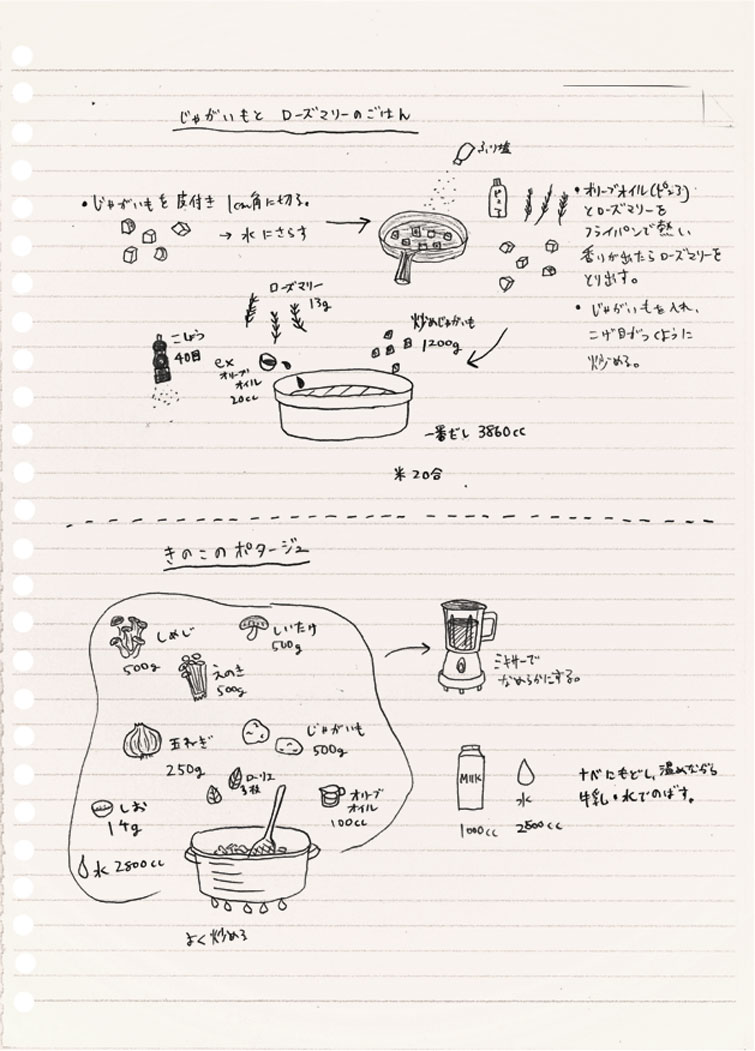 じゃがいもと ローズマリーのごはん
・じゃがいもを皮付き 1cm角に切る。
→ 水にさらす
ふり塩
ピュア
・オリーブオイル(ピュア)
とローズマリーを
フライパンで熱し
香りが出たらローズマリーを
とり出す。
・じゃがいもを入れ、
こげ目がつくように
炒める。
ローズマリー
13g
こしょう
40回
ex
オリーブ
オイル
20cc
炒めじゃがいも
1200g
一番だし 3860cc
米20合
きのこのポタージュ
しめじ
500g
しいたけ
500g
えのき
500g
玉ねぎ
250g
じゃがいも
500g
ローリエ
3枚
しお
14g
オリーブ
オイル
100cc
水 2800cc
よく炒める
ミキサーで
なめらかにする。
MILK
1000cc
水
2800cc
ナベにもどし、温めながら
牛乳・水でのばす。